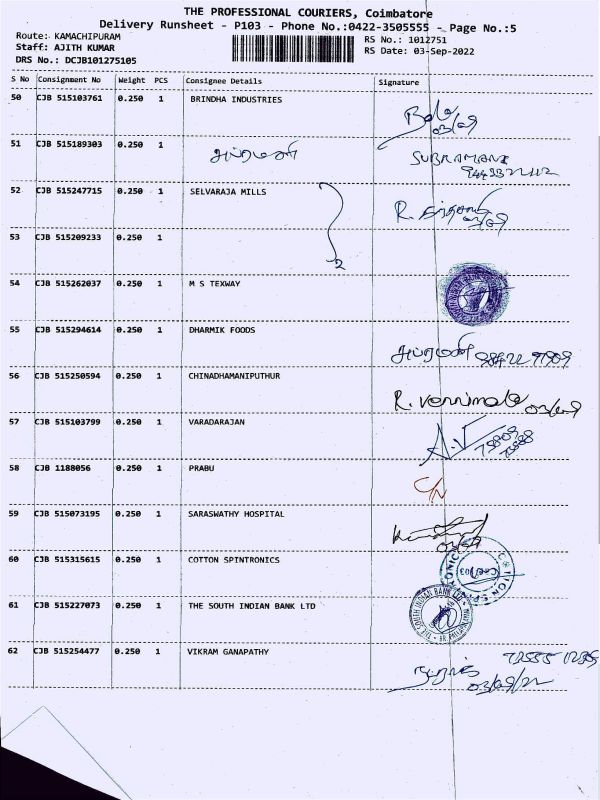 THE PROFESSIONAL COURIERS, Coimbatore
Delivery Runsheet - P103 - Phone No.:0422-3505555 - Page No.:5
Route: KAMACHIPURAM
RS No.: 1012751
Staff: AJITH KUMAR
RS Date: 03-Sep-2022
DRS No.: DCJB101275105
S No Consignment No Weight PCS Consignee Details Signature
50 CJB 515103761 0.250 1 BRINDHA INDUSTRIES
51 CJB 515189303 0.250 1 SUBRAMANI
52 CJB 515247715 0.250 1 SELVARAJA MILLS
53 CJB 515209233 0.250 1 2
54 CJB 515262037 0.250 1 M S TEXWAY
55 CJB 515294614 0.250 1 DHARMIK FOODS
56 CJB 515250594 0.250 1 CHINADHAMANIPUTHUR
57 CJB 515103799 0.250 1 VARADARAJAN A.V
58 CJB 1188056 0.250 1 PRABU C/N
59 CJB 515073195 0.250 1 SARASWATHY HOSPITAL
60 CJB 515315615 0.250 1 COTTON SPINTRONICS
61 CJB 515227073 0.250 1 THE SOUTH INDIAN BANK LTD
62 CJB 515254477 0.250 1 VIKRAM GANAPATHY
03/09/22